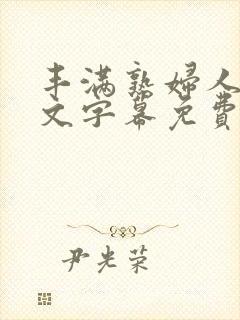 丰满熟妇人
文字幕免费
尹光荣